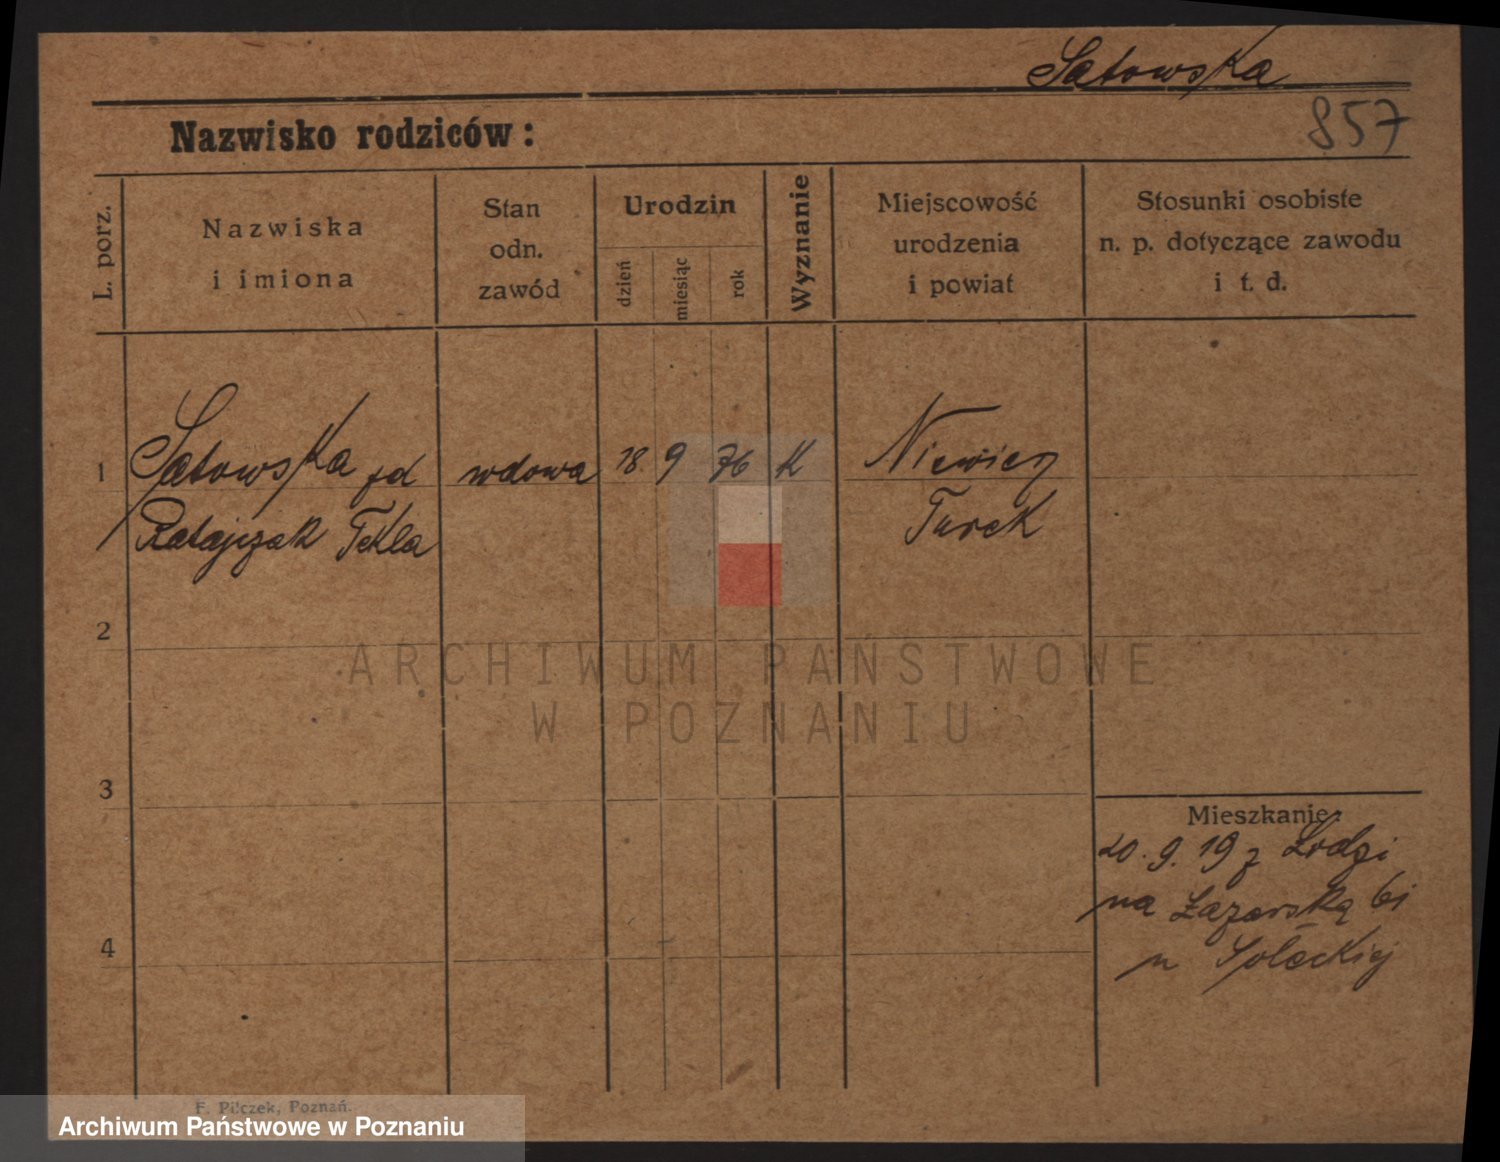 Satowska
857
Nazwisko rodziców:
L. porz.
Nazwiska
i imiona
Stan
odn.
zawód
Urodzin
dzień
miesiąc
rok
Wyznanie
Miejscowość
urodzenia
i powiat
Stosunki osobiste
n. p. dotyczące zawodu
i t. d.
1 Satowska wdowa 18. 9 76 K Niewiesz
Ratajczak Tekla Turek
2
3
4
Mieszkanie:
20. 9. 19 z Łodzi
na Łazarską 6
u
ARCHIWUM PAŃSTWOWE
W POZNANIU
F. Pilczek, Poznań.
Archiwum Państwowe w Poznaniu